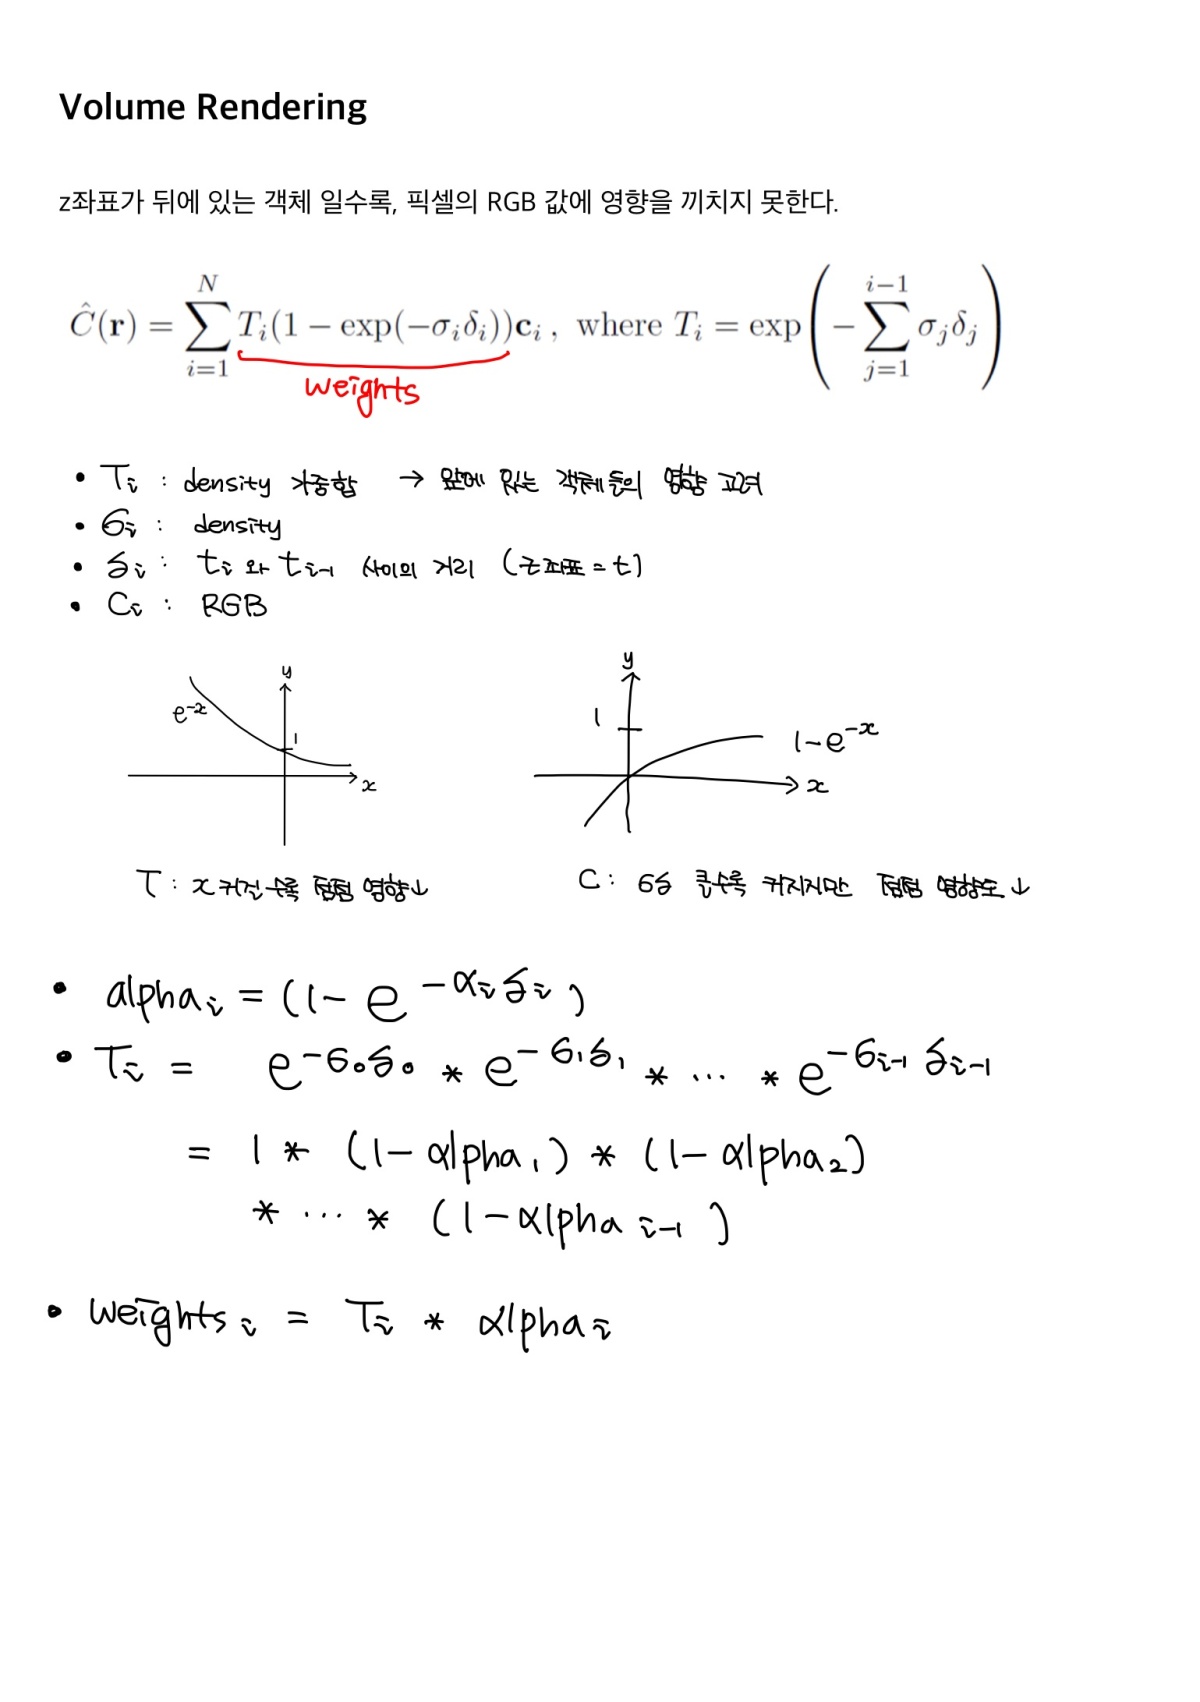 Volume Rendering
z좌표가 뒤에 있는 객체 일수록, 픽셀의 RGB 값에 영향을 끼치지 못한다.
Ĉ(r) = ∑_{i=1}^{N} T_i(1 − exp(−σ_iδ_i))c_i , where T_i = exp(−∑_{j=1}^{i−1} σ_jδ_j)
weights
• T_i : density 가중합 → 앞에 있는 객체들의 영향 고려
• σ_i : density
• δ_i : t_i 와 t_{i-1} 사이의 거리 (z좌표 = t)
• C_i : RGB
y
y
e^{-x}
1
1
1-e^{-x}
x
x
T : x 커질수록 점점 영향↓
C : σδ 클수록 커지지만 점점 영향도↓
• alpha_i = (1- e^{-α_i δ_i})
• T_i = e^{-σ_0δ_0} * e^{-σ_1δ_1} * ... * e^{-σ_{i-1} δ_{i-1}}
= 1 * (1-alpha_1) * (1-alpha_2)
* ... * (1-alpha_{i-1})
• weights_i = T_i * alpha_i